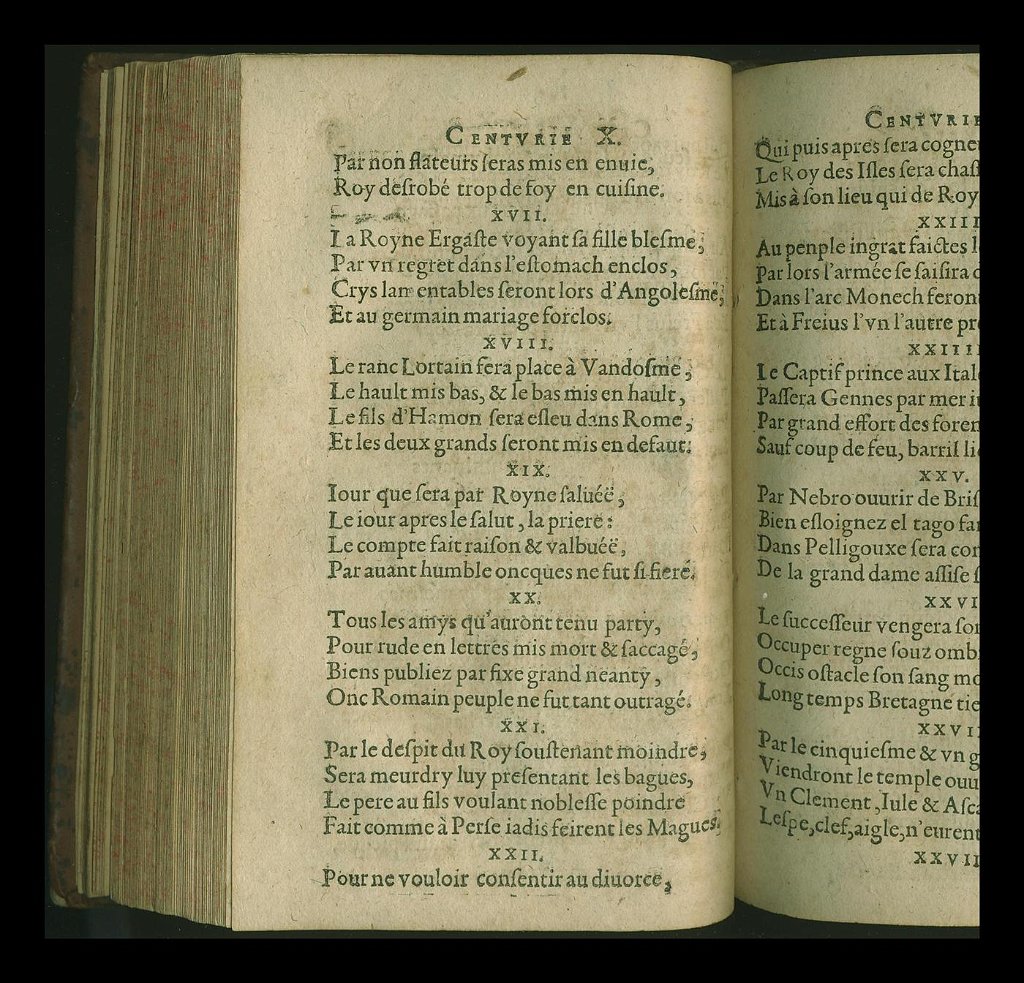 CENTVRIE X.
Par non flateurs ſeras mis en enuie,
Roy deſrobé trop de foy en cuiſine.
XVII.
La Royne Ergaſte voyant ſa fille bleſme,
Par vn regret dans l'eſtomach enclos,
Crys lamentables ſeront lors d'Angoleſme,
Et au germain mariage forclos.
XVIII.
Le ranc Lortain fera place à Vandoſme,
Le hault mis bas, & le bas mis en hault,
Le fils d'Hamon ſera eſleu dans Rome,
Et les deux grands ſeront mis en defaut.
XIX.
Iour que ſera par Royne ſaluéë,
Le iour apres le ſalut, la priere:
Le compte fait raiſon & valbuéë,
Par auant humble oncques ne fut ſi fiere.
XX.
Tous les amys qu'auront tenu party,
Pour rude en lettres mis mort & ſaccagé,
Biens publiez par fixe grand neanty,
Onc Romain peuple ne fut tant outragé.
XXI.
Par le deſpit du Roy ſouſtenant moindre,
Sera meurdry luy preſentant les bagues,
Le pere au fils voulant nobleſſe poindre
Fait comme à Perſe iadis feirent les Magues.
XXII.
Pour ne vouloir conſentir au diuorce,
CENTVRIE
Qui puis apres ſera cogne
Le Roy des Iſles ſera chaſ
Mis à ſon lieu qui de Roy
XXIII
Au penple ingrat faictes l
Par lors l'armée ſe ſaiſira d
Dans l'arc Monech feron
Et à Freius l'vn l'autre pr
XXIIII
Le Captif prince aux Ital
Paſſera Gennes par mer i
Par grand effort des foren
Sauf coup de feu, barril li
XXV.
Par Nebro ouurir de Briſ
Bien eſloignez el tago fa
Dans Pelligouxe ſera co
De la grand dame aſſiſe ſ
XXVI
Le ſucceſſeur vengera ſo
Occuper regne ſouz omb
Occis oſtacle ſon ſang mo
Long temps Bretagne tie
XXVII
Par le cinquieſme & vn g
Viendront le temple ouu
Vn Clement, Iule & Aſca
Leſpe, clef, aigle, n'eurent
XXVII